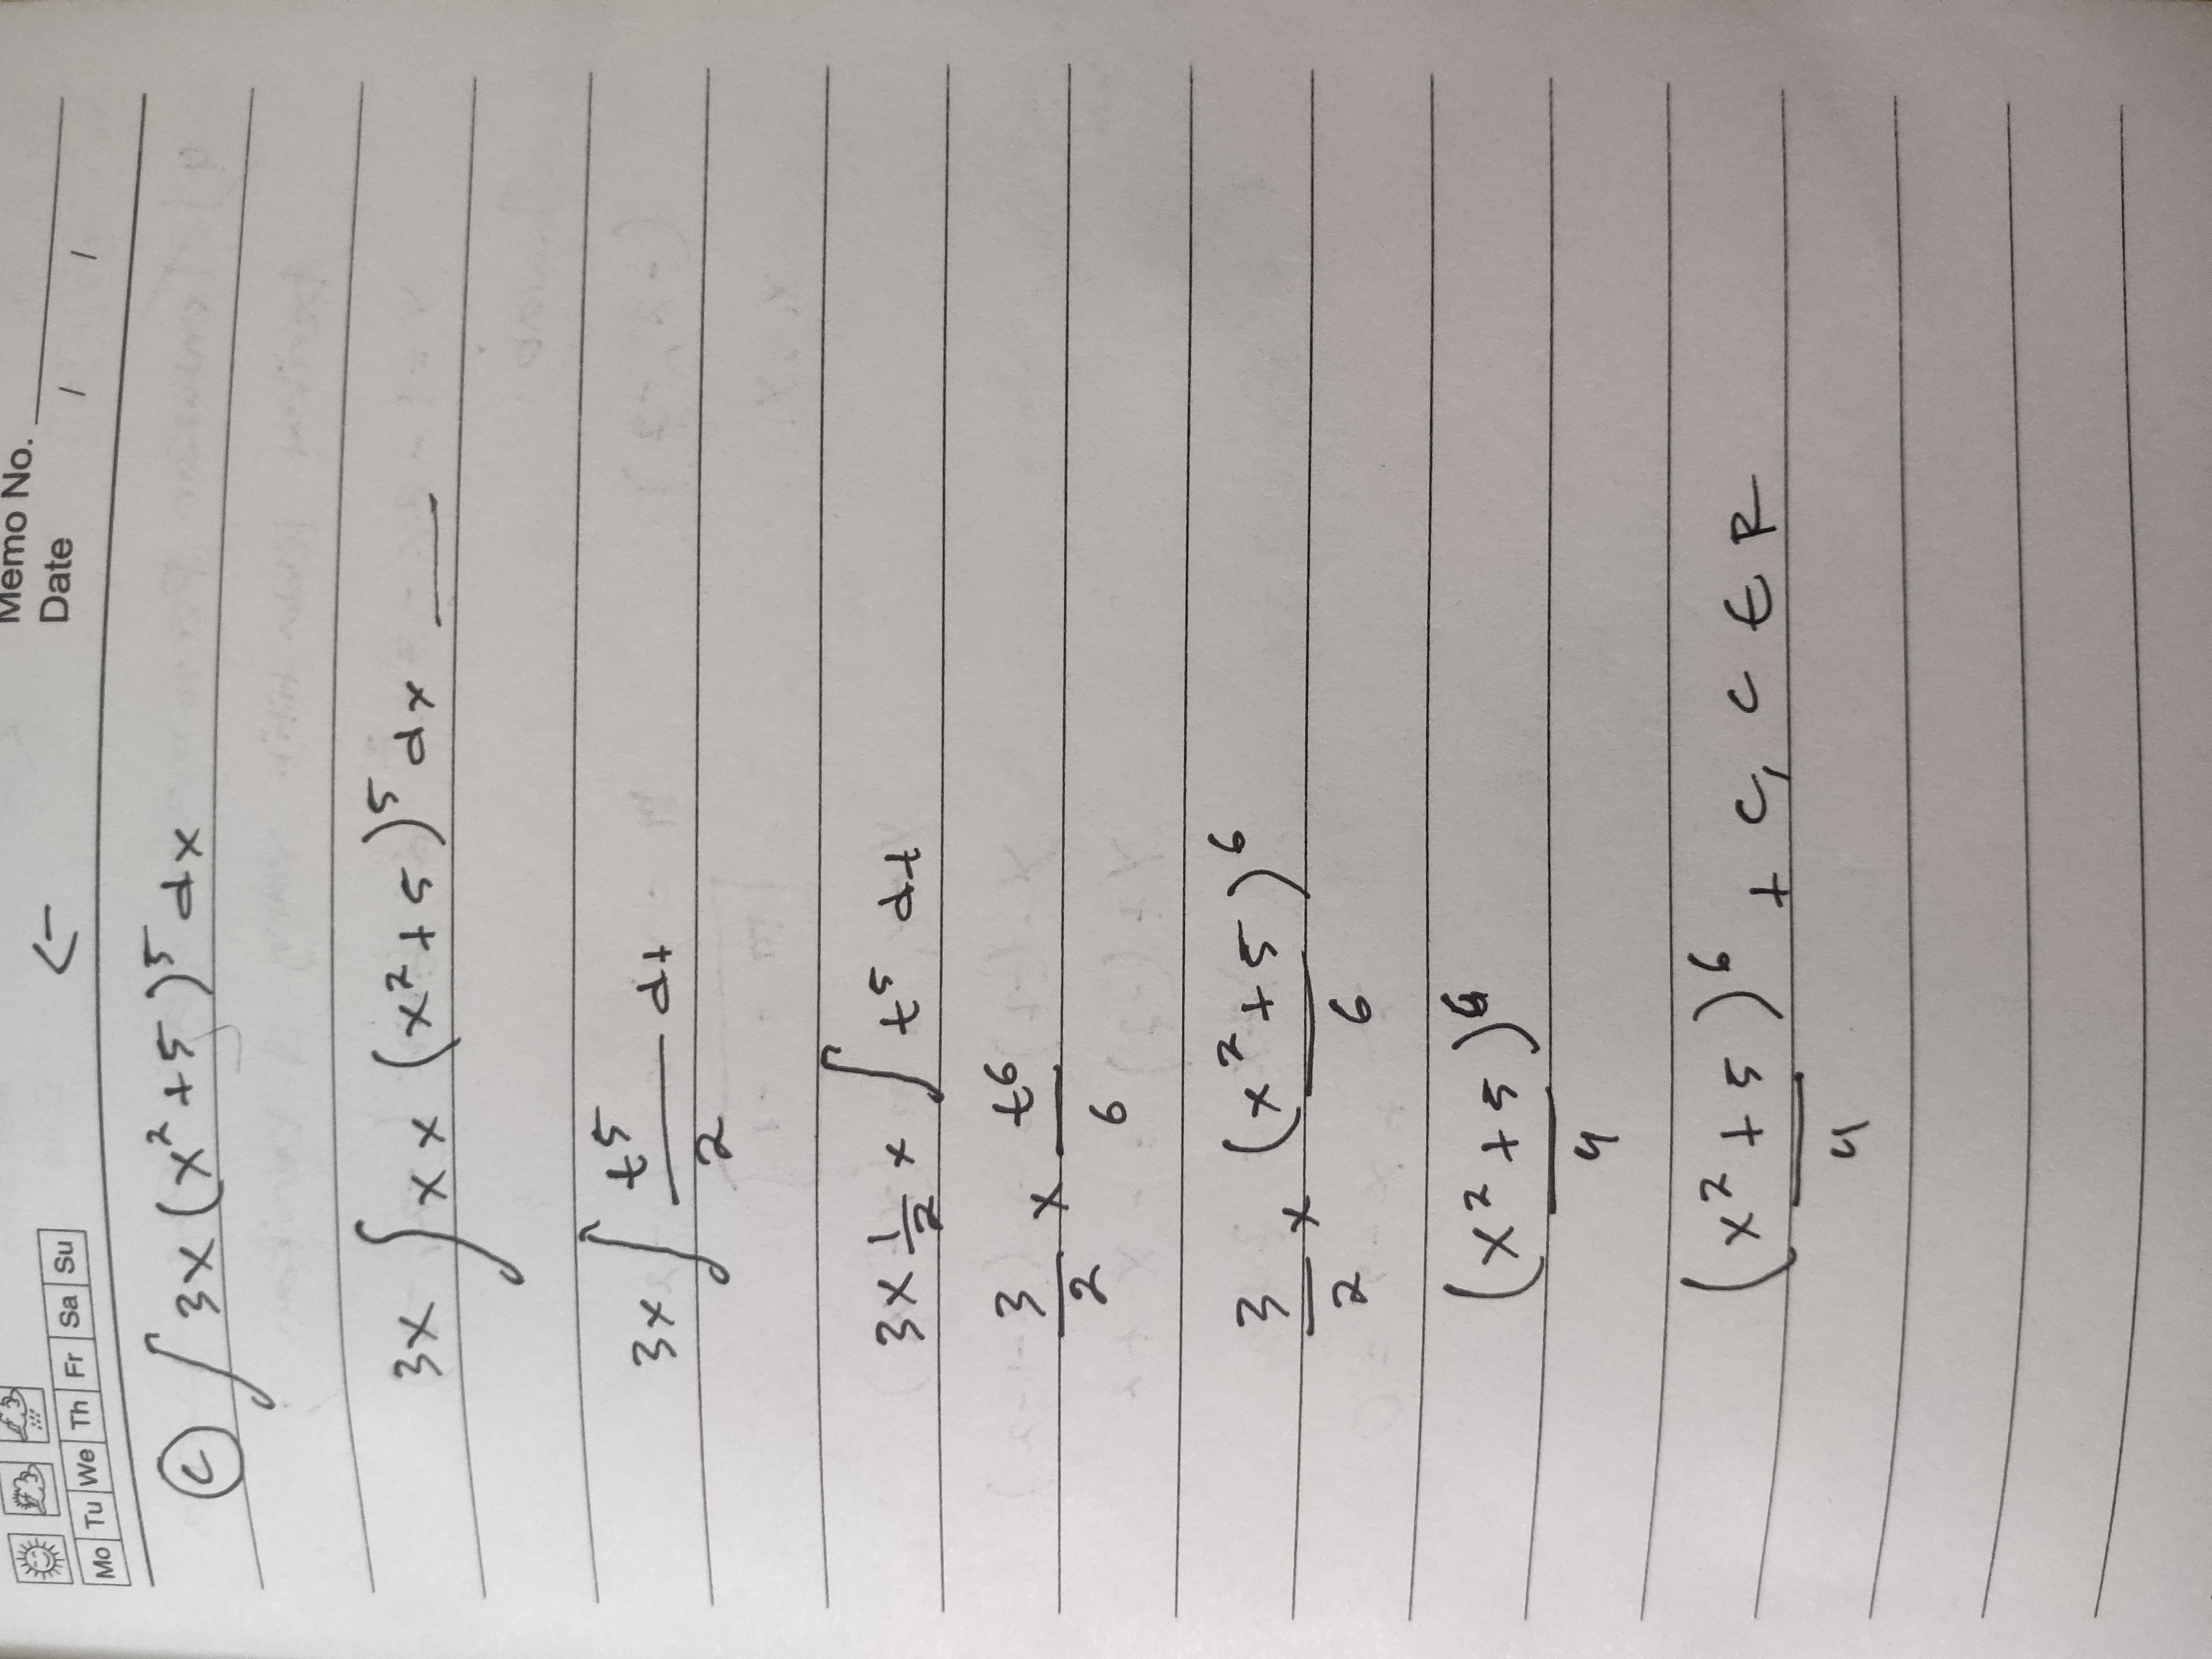 Memo No.
Mo Tu We Th Fr Sa Su
Date / /
←
ⓒ ∫ 3x (x² + 5)⁵ dx
3 × ∫ x × (x² + 5)⁵ dx —
3 × ∫ t⁵/2 dt
3 × 1/2 × ∫ t⁵ dt
3/2 × t⁶/6
3/2 × (x² + 5)⁶/6
(x² + 5)⁶/4
(x² + 5)⁶/4 + C, C ∈ R